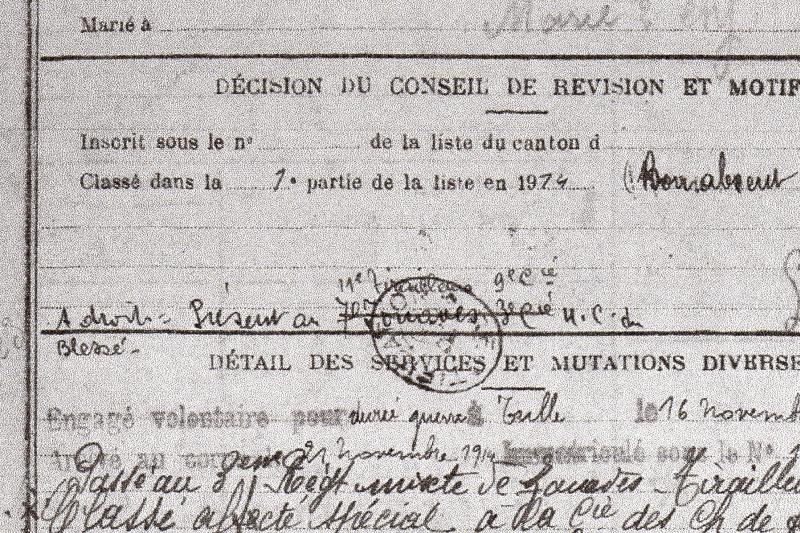 Marié à
DÉCISION DU CONSEIL DE REVISION ET MOTIF
Inscrit sous le n° de la liste du canton d
Classé dans la 1e partie de la liste en 1914 (Bon absent
11e Tirailleurs 9e Cie
A droit - Présent au 7e Zouaves 3e Cie
Blessé -
DÉTAIL DES SERVICES ET MUTATIONS DIVERSE
Engagé volontaire pour durée guerre à Tulle le 16 novemb
Arrivé au corps 21 novembre 1914 Immatriculé sous le N°
Passé au 3e Regt mixte de Zouaves - Tiraille
Classé affecté spécial à la Cie des Ch de